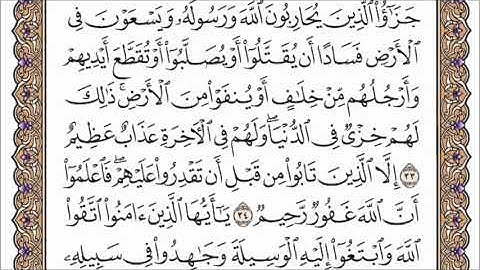 جَزَٰٓؤُا۟ ٱلَّذِينَ يُحَارِبُونَ ٱللَّهَ وَرَسُولَهُۥ وَيَسْعَوْنَ فِى
ٱلْأَرْضِ فَسَادًا أَن يُقَتَّلُوٓا۟ أَوْ يُصَلَّبُوٓا۟ أَوْ تُقَطَّعَ أَيْدِيهِمْ
وَأَرْجُلُهُم مِّنْ خِلَٰفٍ أَوْ يُنفَوْا۟ مِنَ ٱلْأَرْضِ ۚ ذَٰلِكَ
لَهُمْ خِزْىٌ فِى ٱلدُّنْيَا ۖ وَلَهُمْ فِى ٱلْءَاخِرَةِ عَذَابٌ عَظِيمٌ
٣٣ إِلَّا ٱلَّذِينَ تَابُوا۟ مِن قَبْلِ أَن تَقْدِرُوا۟ عَلَيْهِمْ ۖ فَٱعْلَمُوٓا۟
أَنَّ ٱللَّهَ غَفُورٌ رَّحِيمٌ ٣٤ يَٰٓأَيُّهَا ٱلَّذِينَ ءَامَنُوا۟ ٱتَّقُوا۟
ٱللَّهَ وَٱبْتَغُوٓا۟ إِلَيْهِ ٱلْوَسِيلَةَ وَجَٰهِدُوا۟ فِى سَبِيلِهِۦ